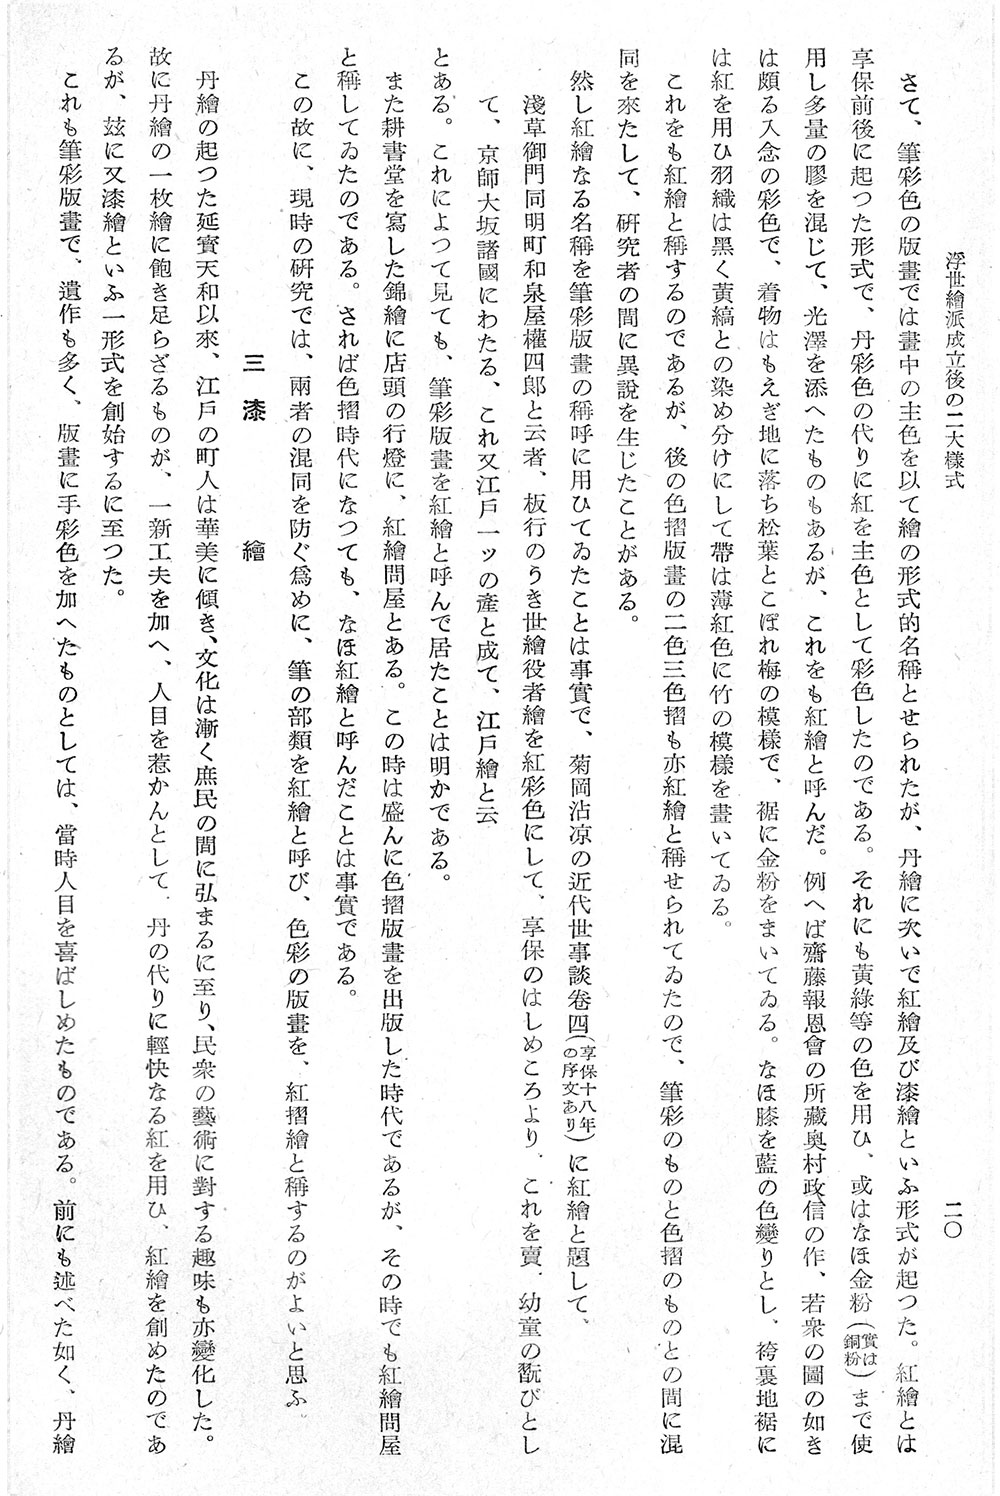 浮世繪派成立後の二大樣式
二〇
さて、筆彩色の版畫では畫中の主色を以て繪の形式的名稱とせられたが、丹繪に次いで紅繪及び漆繪といふ形式が起つた。紅繪とは
享保前後に起つた形式で、丹彩色の代りに紅を主色として彩色したのである。それにも黃綠等の色を用ひ、或はなほ金粉(實は銅粉)まで使
用し多量の膠を混じて、光澤を添へたものもあるが、これをも紅繪と呼んだ。例へば齋藤報恩會の所藏奧村政信の作、若衆の圖の如き
は頗る入念の彩色で、着物はもえぎ地に落ち松葉とこぼれ梅の模樣で、裾に金粉をまいてゐる。なほ膝を藍の色變りとし、袴裏地裾に
は紅を用ひ羽織は黑く黃縞との染め分けにして帶は薄紅色に竹の模樣を畫いてゐる。
これをも紅繪と稱するのであるが、後の色摺版畫の二色三色摺も亦紅繪と稱せられてゐたので、筆彩のものと色摺のものとの間に混
同を來たして、硏究者の間に異說を生じたことがある。
然し紅繪なる名稱を筆彩版畫の稱呼に用ひてゐたことは事實で、菊岡沾凉の近代世事談卷四(享保十八年の序文あり)に紅繪と題して、
淺草御門同明町和泉屋權四郞と云者、板行のうき世繪役者繪を紅彩色にして、享保のはしめころより、これを賣、幼童の翫びとし
て、京師大坂諸國にわたる、これ又江戶一ッの產と成て、江戶繪と云
とある。これによつて見ても、筆彩版畫を紅繪と呼んで居たことは明かである。
また耕書堂を寫した錦繪に店頭の行燈に、紅繪問屋とある。この時は盛んに色摺版畫を出版した時代であるが、その時でも紅繪問屋
と稱してゐたのである。されば色摺時代になつても、なほ紅繪と呼んだことは事實である。
この故に、現時の硏究では、兩者の混同を防ぐ爲めに、筆の部類を紅繪と呼び、色彩の版畫を、紅摺繪と稱するのがよいと思ふ。
三 漆 繪
丹繪の起つた延寶天和以來、江戶の町人は華美に傾き、文化は漸く庶民の間に弘まるに至り、民衆の藝術に對する趣味も亦變化した。
故に丹繪の一枚繪に飽き足らざるものが、一新工夫を加へ、人目を惹かんとして、丹の代りに輕快なる紅を用ひ、紅繪を創めたのであ
るが、玆に又漆繪といふ一形式を創始するに至つた。
これも筆彩版畫で、遺作も多く、版畫に手彩色を加へたものとしては、當時人目を喜ばしめたものである。前にも述べた如く、丹繪